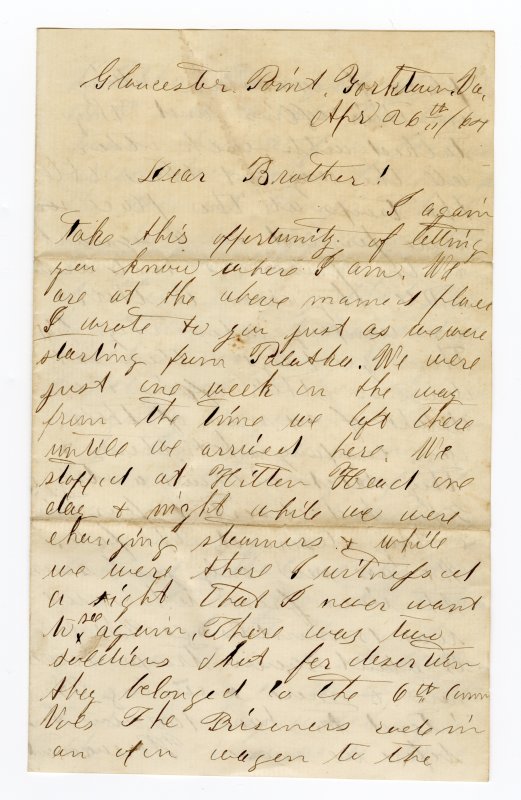 Gloucester Point, Yorktown, Va,
Apr. 26th/64
Dear Brother!
I again
take this oppertunity of letting
you know where I am. We
are at the above named place
I wrote to you just as we were
starting from Palatka. We were
just one week on the way
from the time we left there
untill we arrived here. We
stopped at Hilton Head one
day & night while we were
changing steamers & while
we were there I witnessed
a sight that I never want
to see again. There was two
soldiers shot for desertion
they belonged to the 6th Conn
Vols The Prisoners rode in
an open wagon to the